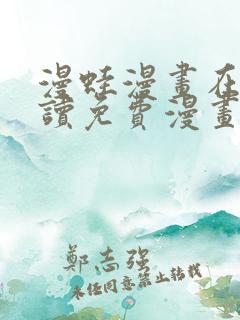 漫蛙漫畫在
讀免費漫畫
鄭志強
未經同意禁止轉載